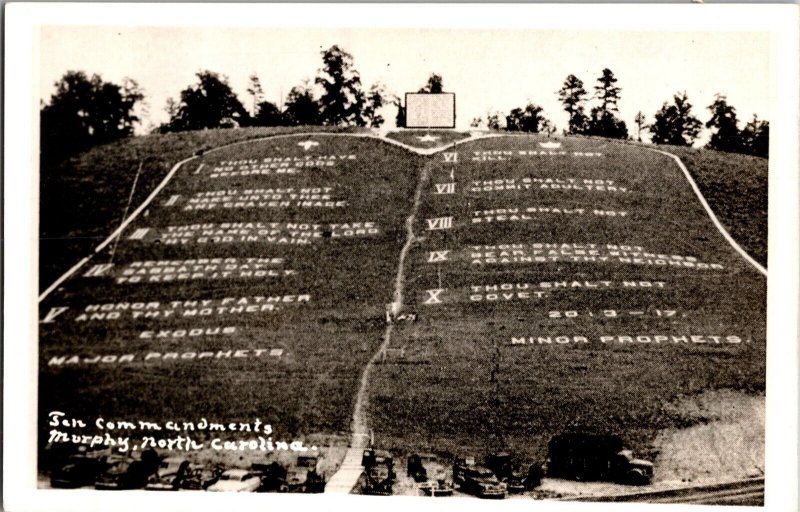 I THOU SHALT HAVE
NO
BEFORE ME.
II THOU SHALT NOT
MAKE UNTO THEE
ANY GRAVEN IMAGE
III THOU SHALT NOT TAKE
THE NAME OF THE LORD
THY GOD IN VAIN.
IV THE
SABBATH DAY
TO KEEP IT HOLY
V HONOR THY FATHER
AND THY MOTHER.
EXODUS
MAJOR PROPHETS.
VI THOU SHALT NOT
KILL.
VII THOU SHALT NOT
COMMIT ADULTERY.
VIII THOU SHALT NOT
STEAL
IX THOU SHALT NOT
BEAR FALSE WITNESS
AGAINST THY NEIGHBOR
X THOU SHALT NOT
COVET.
20:3-17.
MINOR PROPHETS.
Ten Commandments
Murphy, North Carolina.